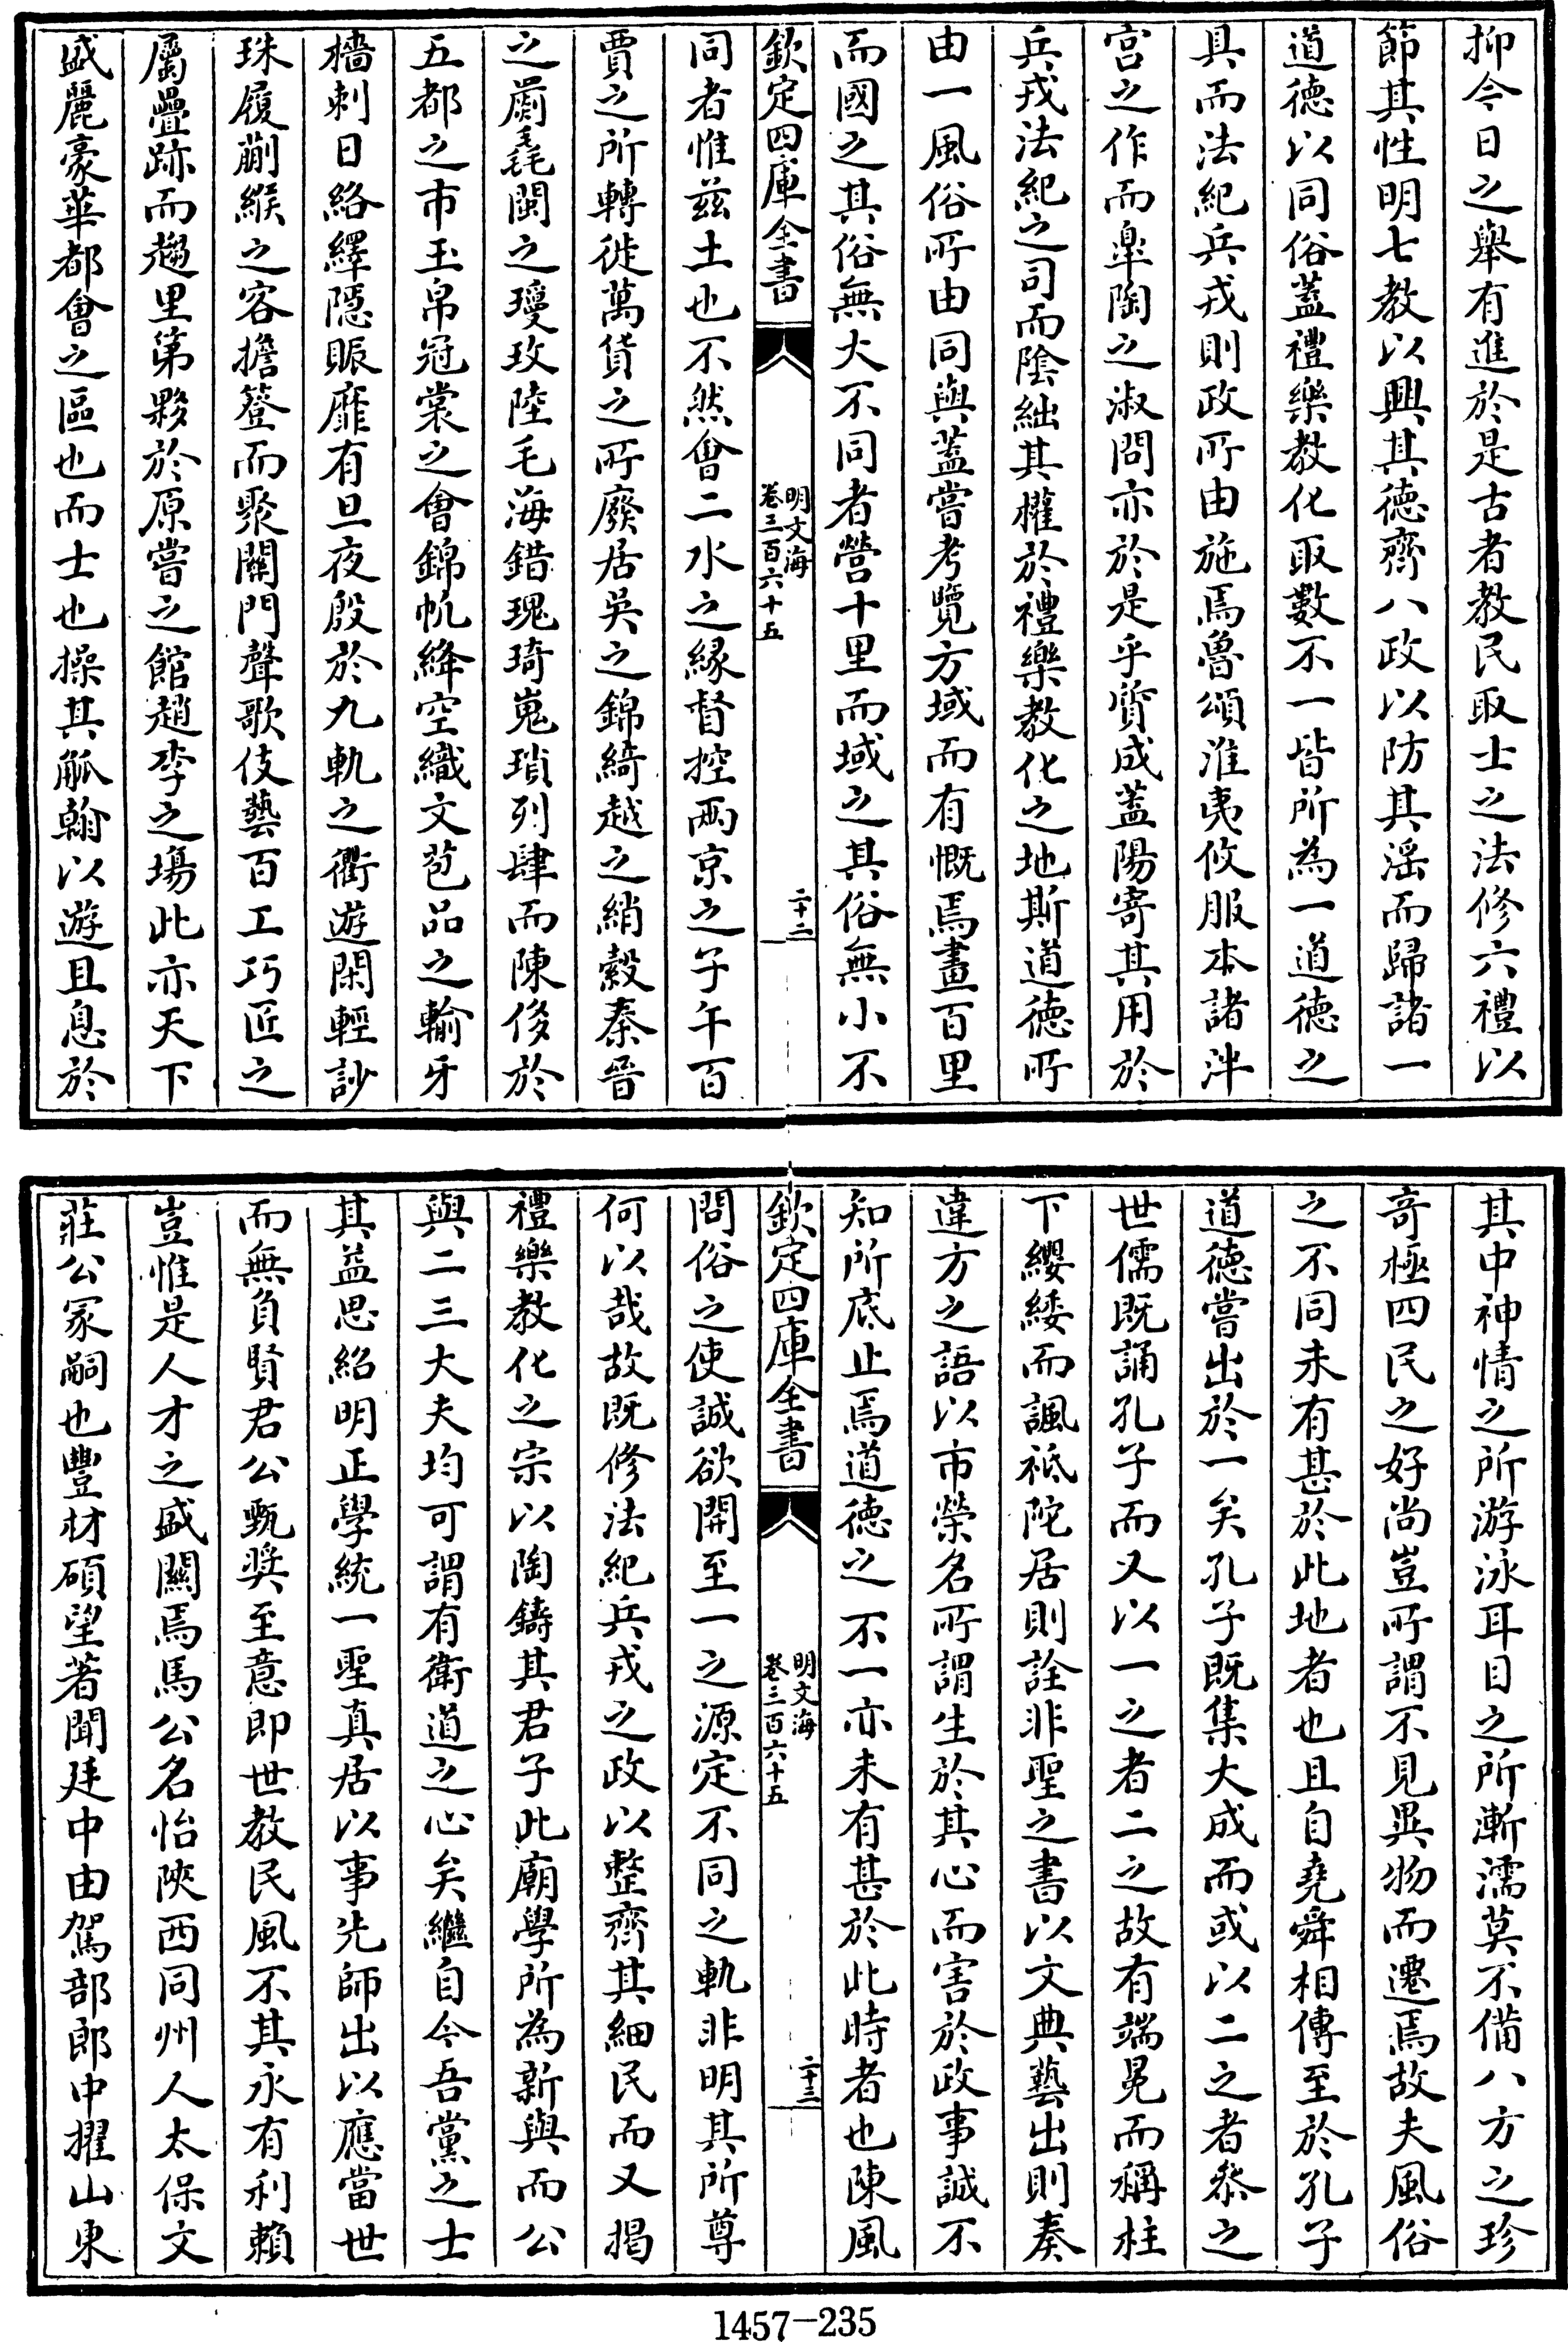 抑今日之舉有進於是古者教民取士之法修六禮以
節其性明七教以興其德齊八政以防其淫而歸諸一
道德以同俗蓋禮樂教化取數不一皆所為一道德之
具而法紀兵戎則政所由施焉魯頌淮夷攸服本諸泮
宫之作而臯陶之淑問亦於是乎質成蓋陽寄其用於
兵戎法紀之司而陰絀其權於禮樂教化之地斯道德所
由一風俗所由同與蓋嘗考覽方域而有慨焉畫百里
而國之其俗無大不同者營十里而域之其俗無小不
欽定四庫全書
明文海
卷三百六十五
二十二
同者惟兹土也不然會二水之縁督控兩京之子午百
賈之所轉徙萬貨之所廢居吳之錦綺越之綃縠秦晉
之罽毳閩之瓊玫陸毛海錯瑰琦嵬瑣列肆而陳侈於
五都之市玉帛冠裳之會錦帆絳空織文苞品之輸牙
檣刺日絡繹隱賑靡有旦夜殷於九軌之衢遊閑輕訬
珠履蒯緱之容擔簦而聚關門聲歌伎藝百工巧匠之
屬疊跡而趨里第夥於原嘗之館趙李之塲此亦天下
盛麗豪華都會之區也而士也操其觚翰以遊且息於
其中神情之所游泳耳目之所漸濡莫不備八方之珍
奇極四民之好尚豈所謂不見異物而遷焉故夫風俗
之不同未有甚於此地者也且自堯舜相傳至於孔子
道德嘗出於一矣孔子既集大成而或以二之者叅之
世儒既誦孔子而又以一之者二之故有端冕而稱柱
下纓緌而諷祇陀居則詮非聖之書以文典藝出則奏
違方之語以市榮名所謂生於其心而害於政事誠不
知所底止焉道德之不一亦未有甚於此時者也陳風
欽定四庫全書
明文海
卷三百六十五
二十三
問俗之使誠欲開至一之源定不同之軌非明其所尊
何以哉故既修法紀兵戎之政以整齊其細民而又揭
禮樂教化之宗以陶鑄其君子此廟學所為新與而公
與二三大夫均可謂有衛道之心矣繼自今吾黨之士
其益思紹明正學統一聖真居以事先師出以應當世
而無負賢君公甄奬至意即世教民風不其永有利賴
豈惟是人才之盛關焉馬公名怡陜西同州人太保文
莊公冢嗣也豐材碩望著聞廷中由駕部郎中擢山東
1457-235